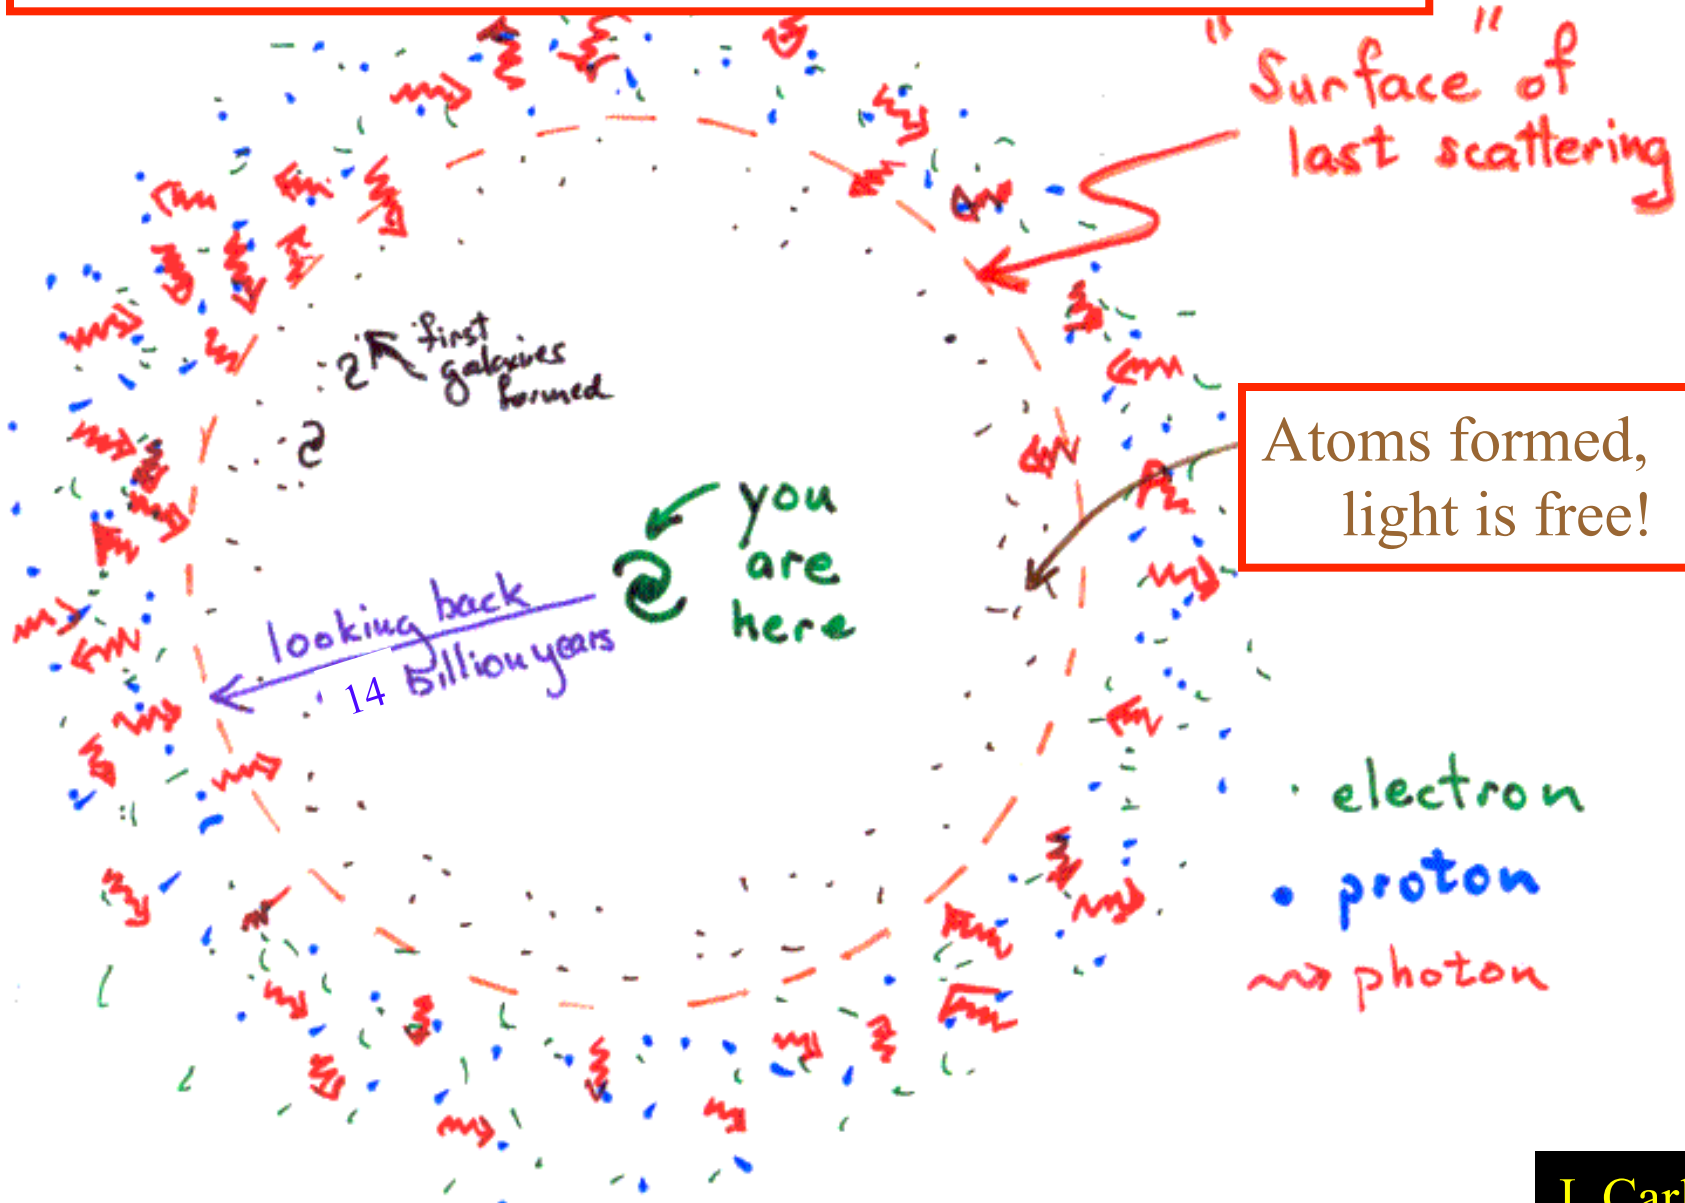 "Surface" of
last scattering
first
galaxies
formed
Atoms formed,
light is free!
you
are
here
looking back
14 billion years
electron
proton
photon